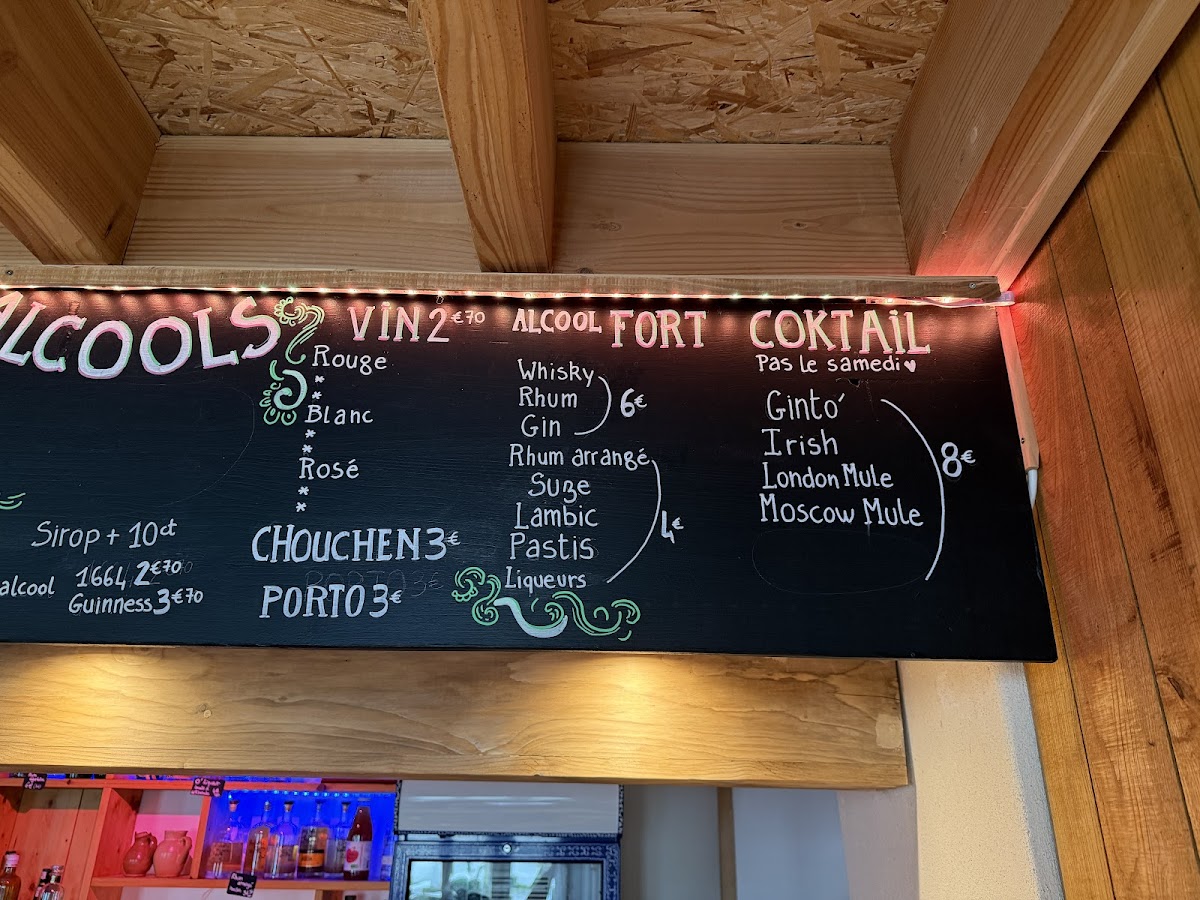 ALCOOLS
Sirop + 10ct
alcool
1664 2€70
Guinness 3€70
VIN 2€70
Rouge
Blanc
Rosé
CHOUCHEN 3€
PORTO 3€
ALCOOL FORT
Whisky
Rhum
Gin
6€
Rhum arrangé
Suze
Lambic
Pastis
Liqueurs
4€
COKTAIL
Pas le samedi♥
Ginto'
Irish
London Mule
Moscow Mule
8€